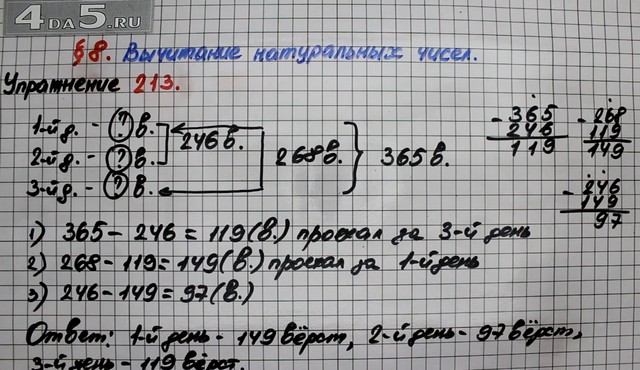 4DA5.RU
§ 8. Вычитание натуральных чисел.
Упражнение 213.
1-й д. - ? в.
2-й д. - ? в.
3-й д. - ? в.
246 в.
268 в.
365 в.
- 365
246
119
- 268
119
149
- 246
149
97
1) 365 - 246 = 119 (в.) проехал за 3-й день
2) 268 - 119 = 149 (в.) проехал за 1-й день
3) 246 - 149 = 97 (в.)
Ответ: 1-й день - 149 вёрст, 2-й день - 97 вёрст,
3-й день - 119 вёрст.